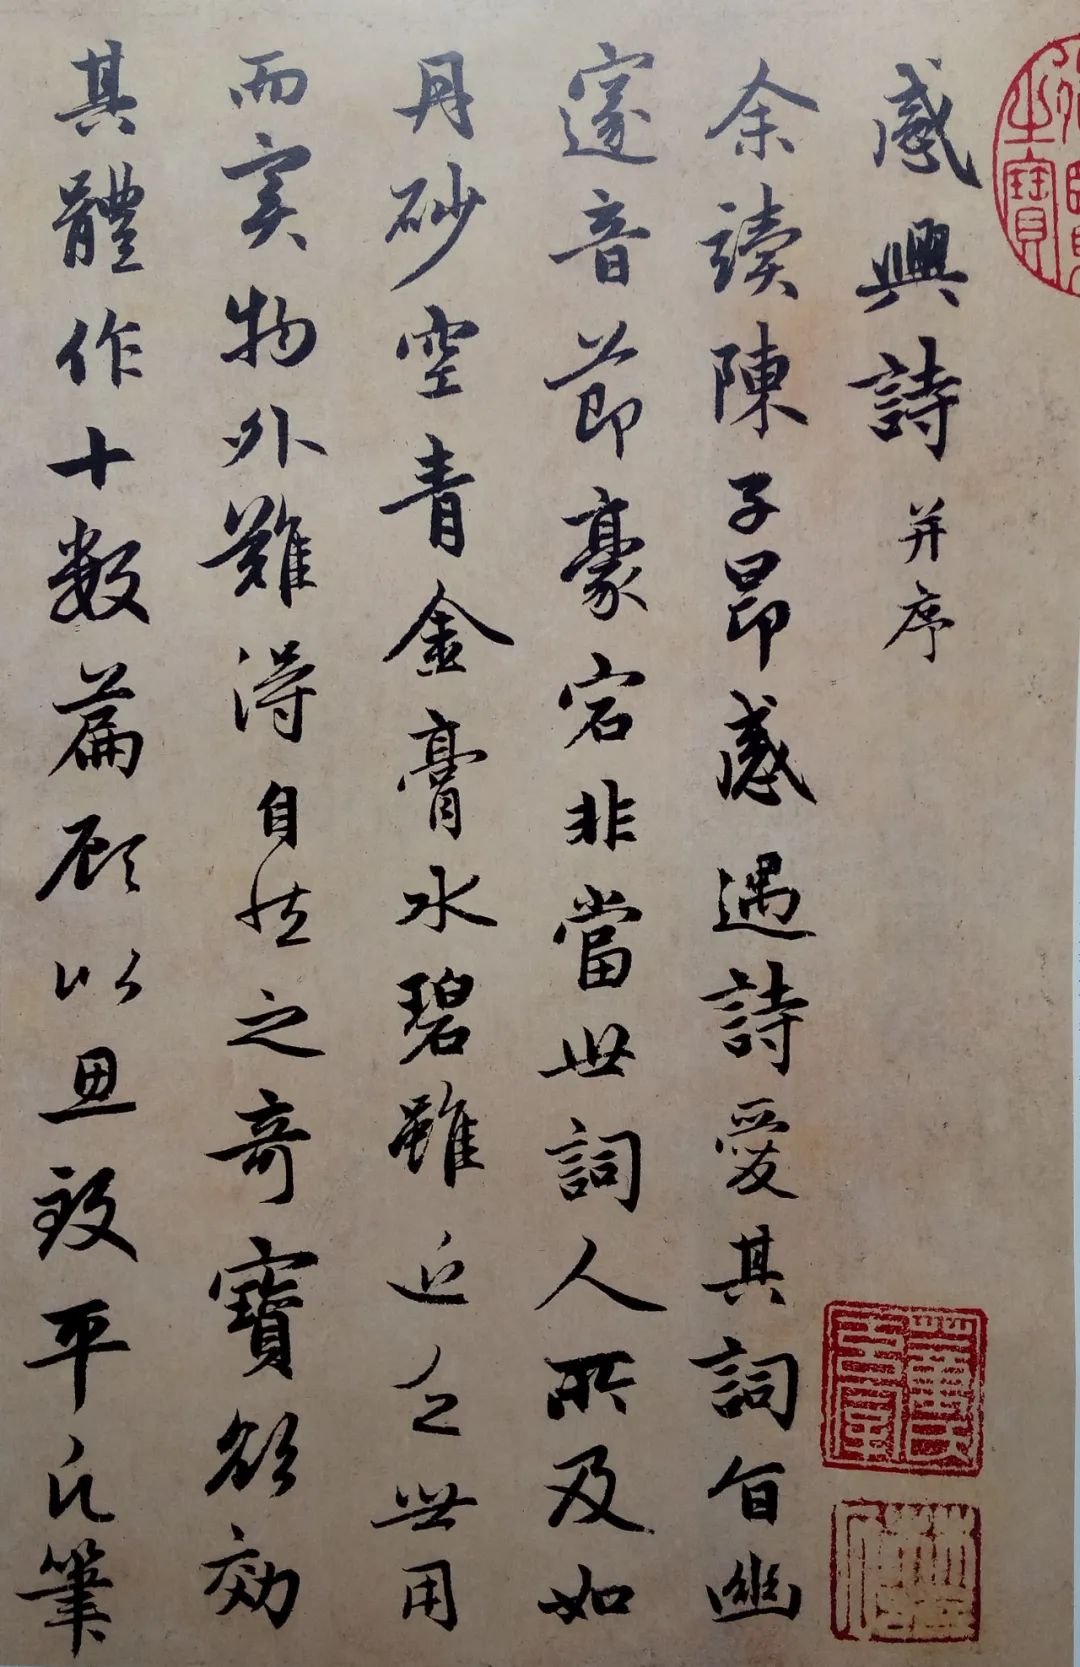 感興詩并序
余讀陳子昂感遇詩愛其詞旨幽
邃音節豪宕非當世詞人所及如
丹砂空青金膏水碧雖近乏世用
而實物外難得自然之奇寶欲効
其體作十數篇顧以思致平凡筆